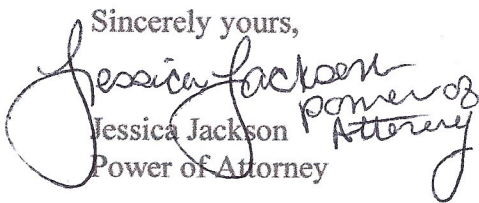 Sincerely yours,
Jessica Jackson
power of
Attorney
Jessica Jackson
Power of Attorney